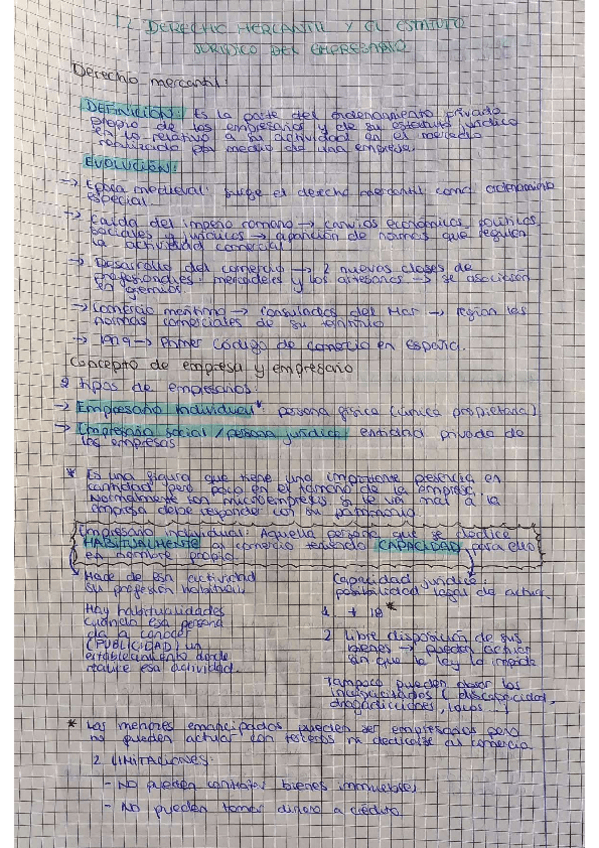 1. DERECHO MERCANTIL Y EL ESTATUTO
JURÍDICO DEL EMPRESARIO
Derecho mercantil:
DEFINICIÓN: Es la parte del ordenamiento privado
propio de los empresarios y de su estatuto jurídico
en lo relativo a su actividad en el mercado
realizado por medio de una empresa.
EVOLUCIÓN:
-> Época medieval: surge el derecho mercantil como ordenamiento
especial.
-> Caída del imperio romano -> canvios económicos, políticos,
sociales y jurídicos -> aparición de normas que regulen
la actividad comercial
-> Desarrollo del comercio -> 2 nuevas clases de
profesionales: mercaderes y los artesanos -> se asociaron
en gremios.
-> Comercio marítimo -> Consulados del Mar -> regían las
normas comerciales de su territorio
-> 1829 -> Primer código de comercio en España.
Concepto de empresa y empresario
2 tipos de empresarios:
-> Empresario individual*: persona física (única propietaria)
-> Empresario social / persona jurídica: entidad privada de
las empresas
* Es una figura que tiene una importante presencia en
cantidad pero poca en el tamaño de la empresa.
Normalmente son microempresas, si le va mal a la
empresa debe responder con su patrimonio.
Empresario individual: Aquella persona que se dedica
HABITUALMENTE al comercio teniendo CAPACIDAD para ello
en nombre propio.
Hace de esa actividad
su profesión habitual.
Hay habitualidades
cuando esa persona
da a conocer
(PUBLICIDAD) un
establecimiento donde
realice esa actividad.
Capacidad jurídica:
posibilidad legal de actuar.
1 + 18*
2 Libre disposición de sus
bienes -> pueden actuar
sin que la ley lo impida
Tampoco pueden obrar los
incapacitados (discapacidad,
drogadicciones, locos...)
* Los menores emancipados pueden ser empresarios pero
no pueden actuar con terceros ni dedicarse al comercio.
2 LIMITACIONES:
- No pueden contratar bienes inmuebles
- No pueden tomar dinero a crédito.